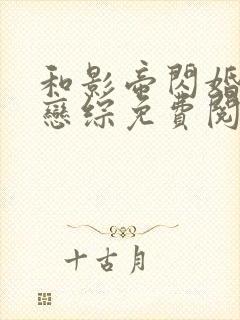 和影帝閃婚
戀綜免費閱
十古月